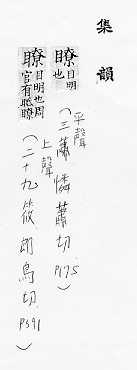 集韻
瞭目明也
平聲
(三蕭憐蕭切 P175)
瞭目明也周官有眡瞭
上聲
(二十九筱朗鳥切 P391)